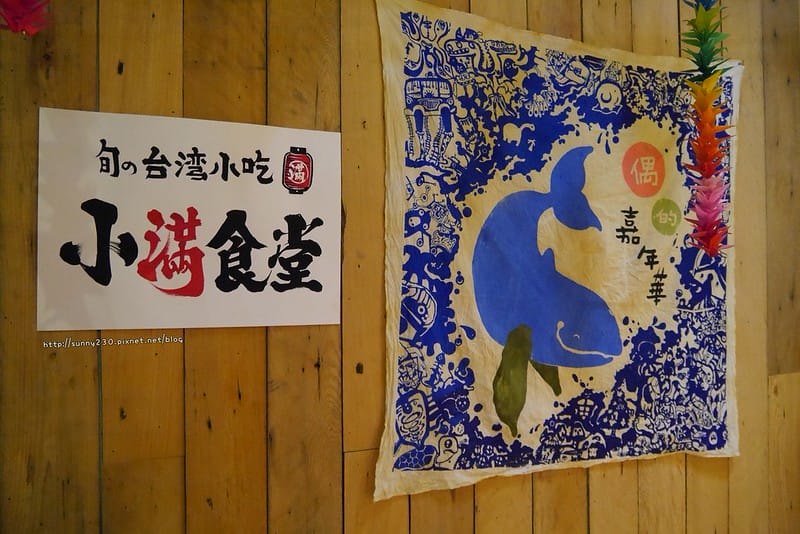 旬の台湾小吃
満
小満食堂
http://sunny230.pixnet.net/blog
偶
的
嘉年華